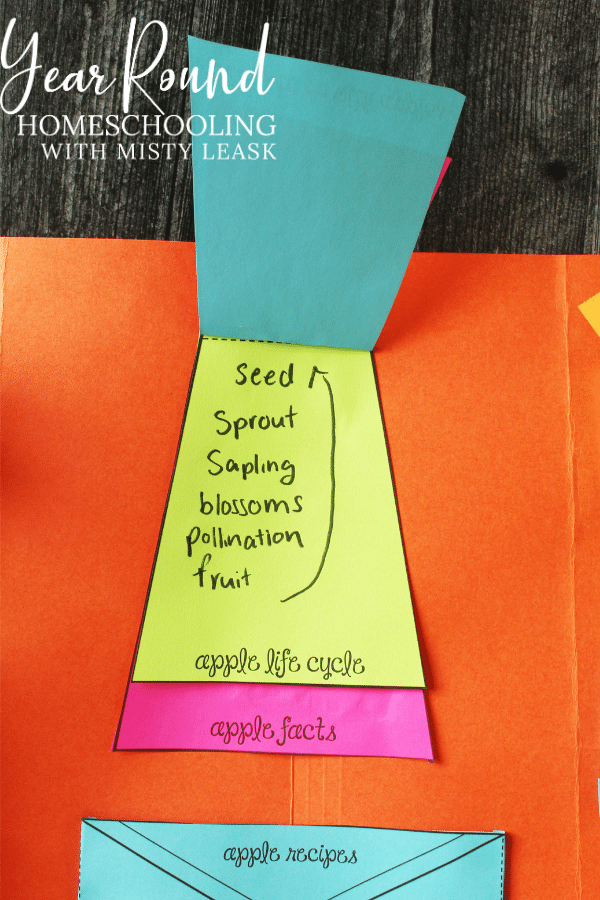 Year Round
HOMESCHOOLING
WITH MISTY LEASK
Seed
Sprout
Sapling
blossoms
pollination
fruit
apple life cycle
apple facts
apple recipes